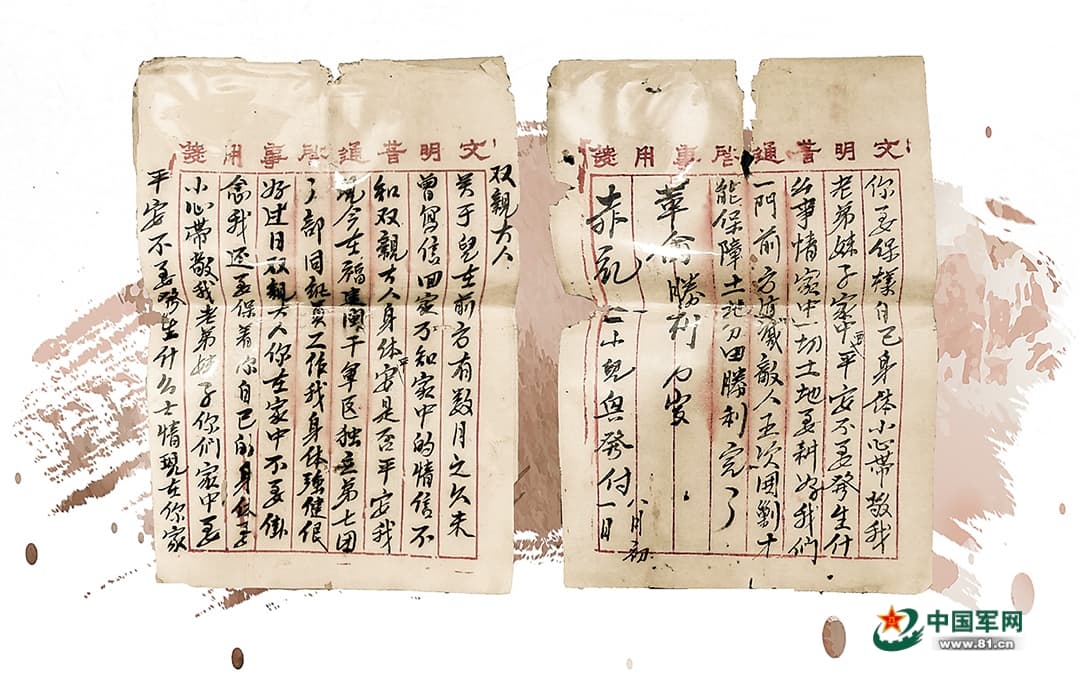 文明普通啓事用箋
双親大人
关于兒在前方有数月之久未
曾写信回家不知家中的情信不
知双親大人身体安是否平安我
現今在福建閩干軍区独立第七团
部同誌負工作我身体强健很
好过日双親大人你在家中不要掛
念我还要保着你自己的身体要
小心帶敬我老弟妹子你们家中要
平安不要發生什么士情現在你家
文明普通啓事用箋
你要保样自己身体小心帶敬我
老弟妹子家中要平安不要發生什
么事情家中一切土地要耕好我们
一門前方消滅敵人五次囲剿才
能保障土地分田勝利完了
革命勝利万岁
赤礼 小兒與發付 八月初一日
中国军网
www.81.cn